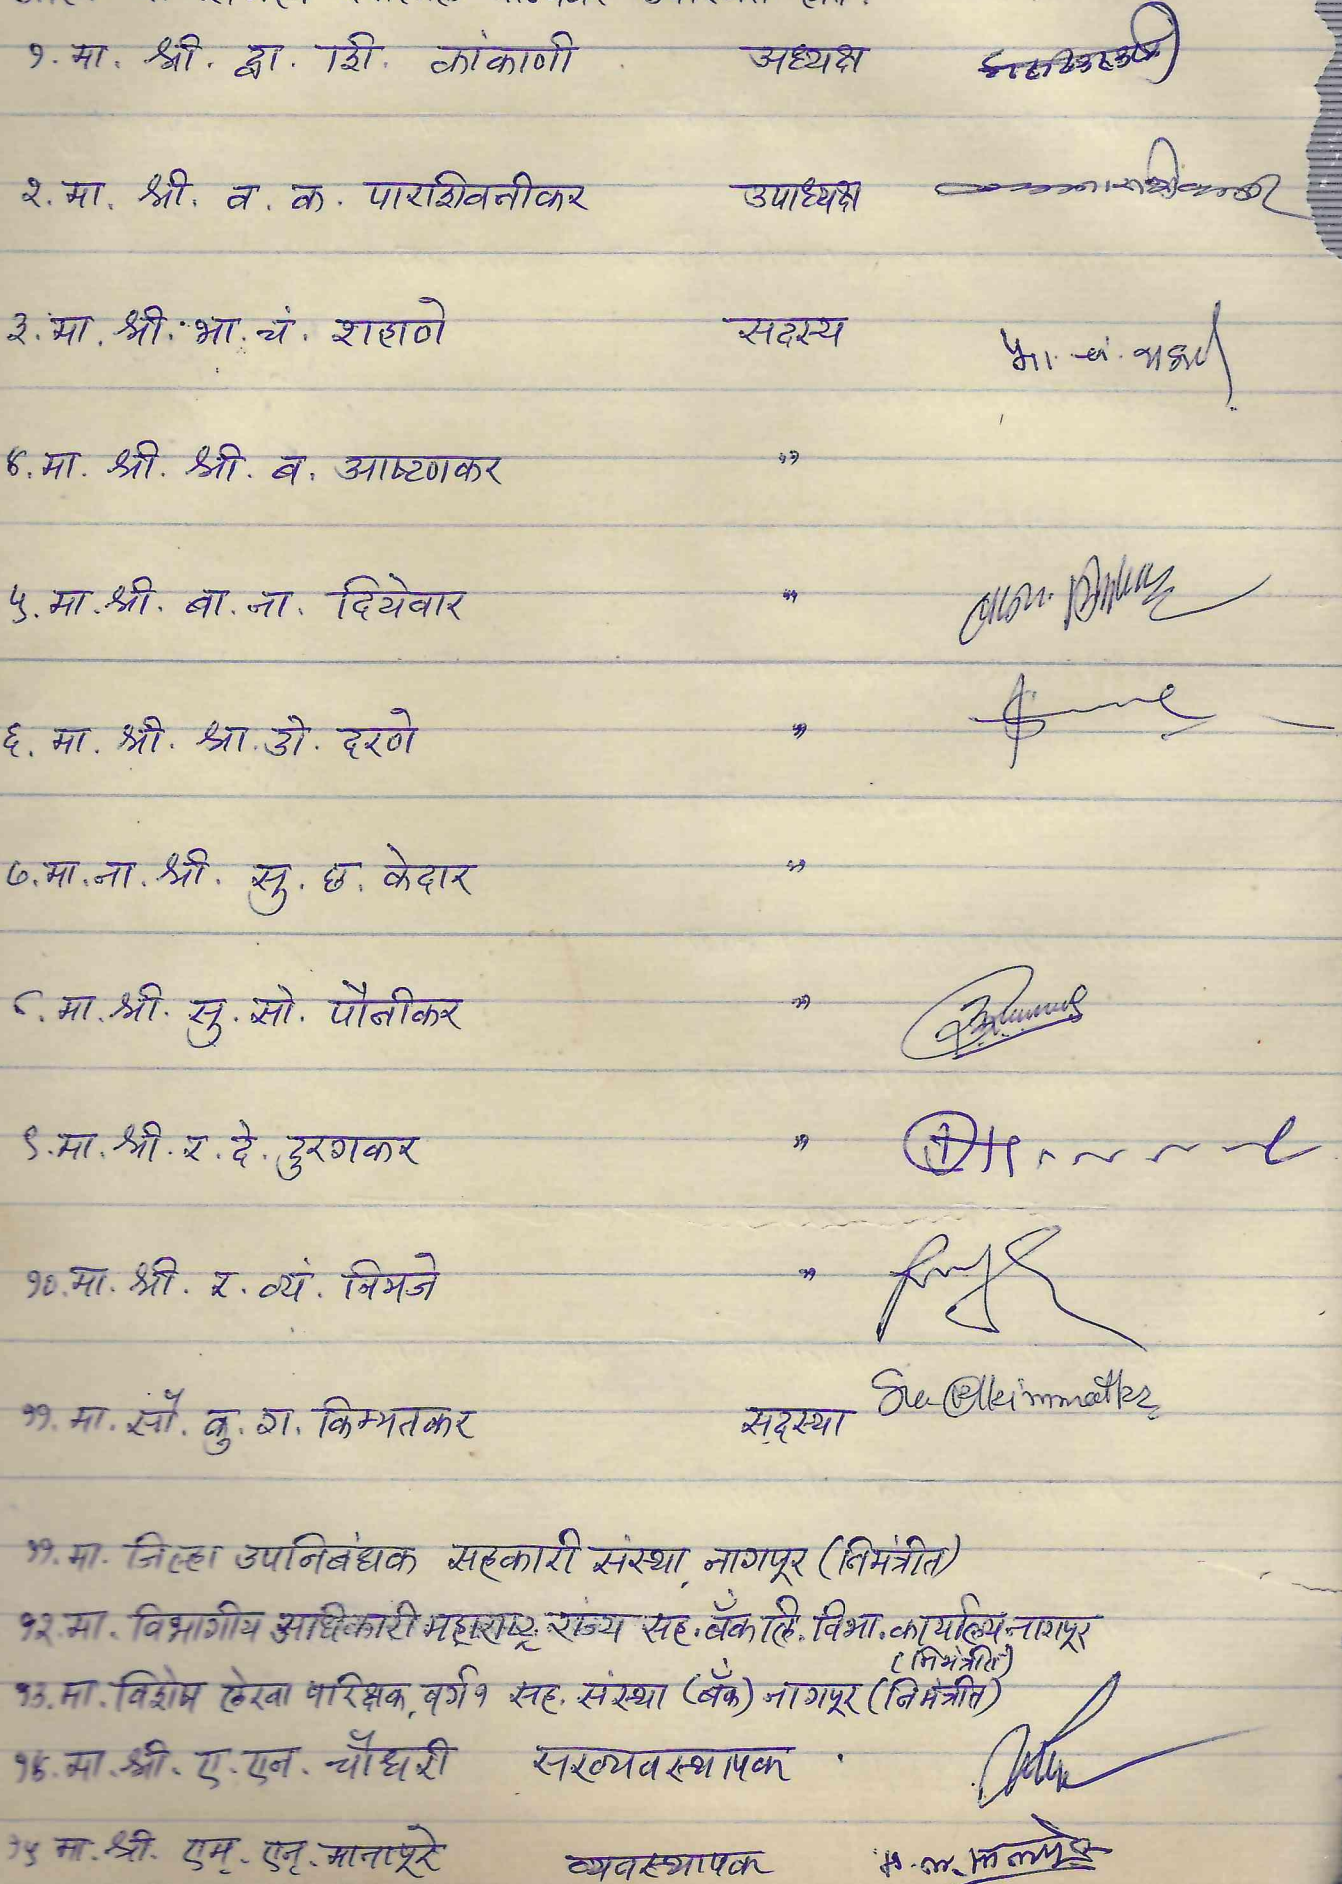 १. मा. श्री. द्वा. शि. कांकाणी अध्यक्ष
२. मा. श्री. व. क. पारशिवनीकर उपाध्यक्ष
३. मा. श्री. भा. चं. शहाणे सदस्य भा. चं. शहाणे
४. मा. श्री. श्री. ब. आष्टणकर "
५. मा. श्री. बा. ना. दियेवार "
६. मा. श्री. श्रा. डो. दरणे "
७. मा. ना. श्री. सु. छ. केदार "
८. मा. श्री. सु. सो. पौनीकर "
९. मा. श्री. र. दे. दुरगकर "
१०. मा. श्री. र. व्यं. निमजे "
११. मा. सौ. कु. श. किम्मतकर सदस्या
११. मा. जिल्हा उपनिबंधक सहकारी संस्था, नागपूर (निमंत्रीत)
१२. मा. विभागीय अधिकारी महाराष्ट्र राज्य सह. बँक लि. विभा. कार्यालय नागपूर
(निमंत्रीत)
१३. मा. विशेष लेखा परिक्षक, वर्ग १ सह. संस्था (बँक) नागपूर (निमंत्रीत)
१४. मा. श्री. ए. एन. चौधरी सरव्यवस्थापक
१५ मा. श्री. एम्. एन्. मानापूरे व्यवस्थापक